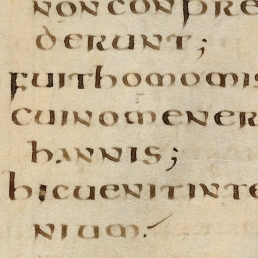 non conpre
derunt;
fuit homo mis
cui nomen er
hannis;
hic uenit in te
nium.